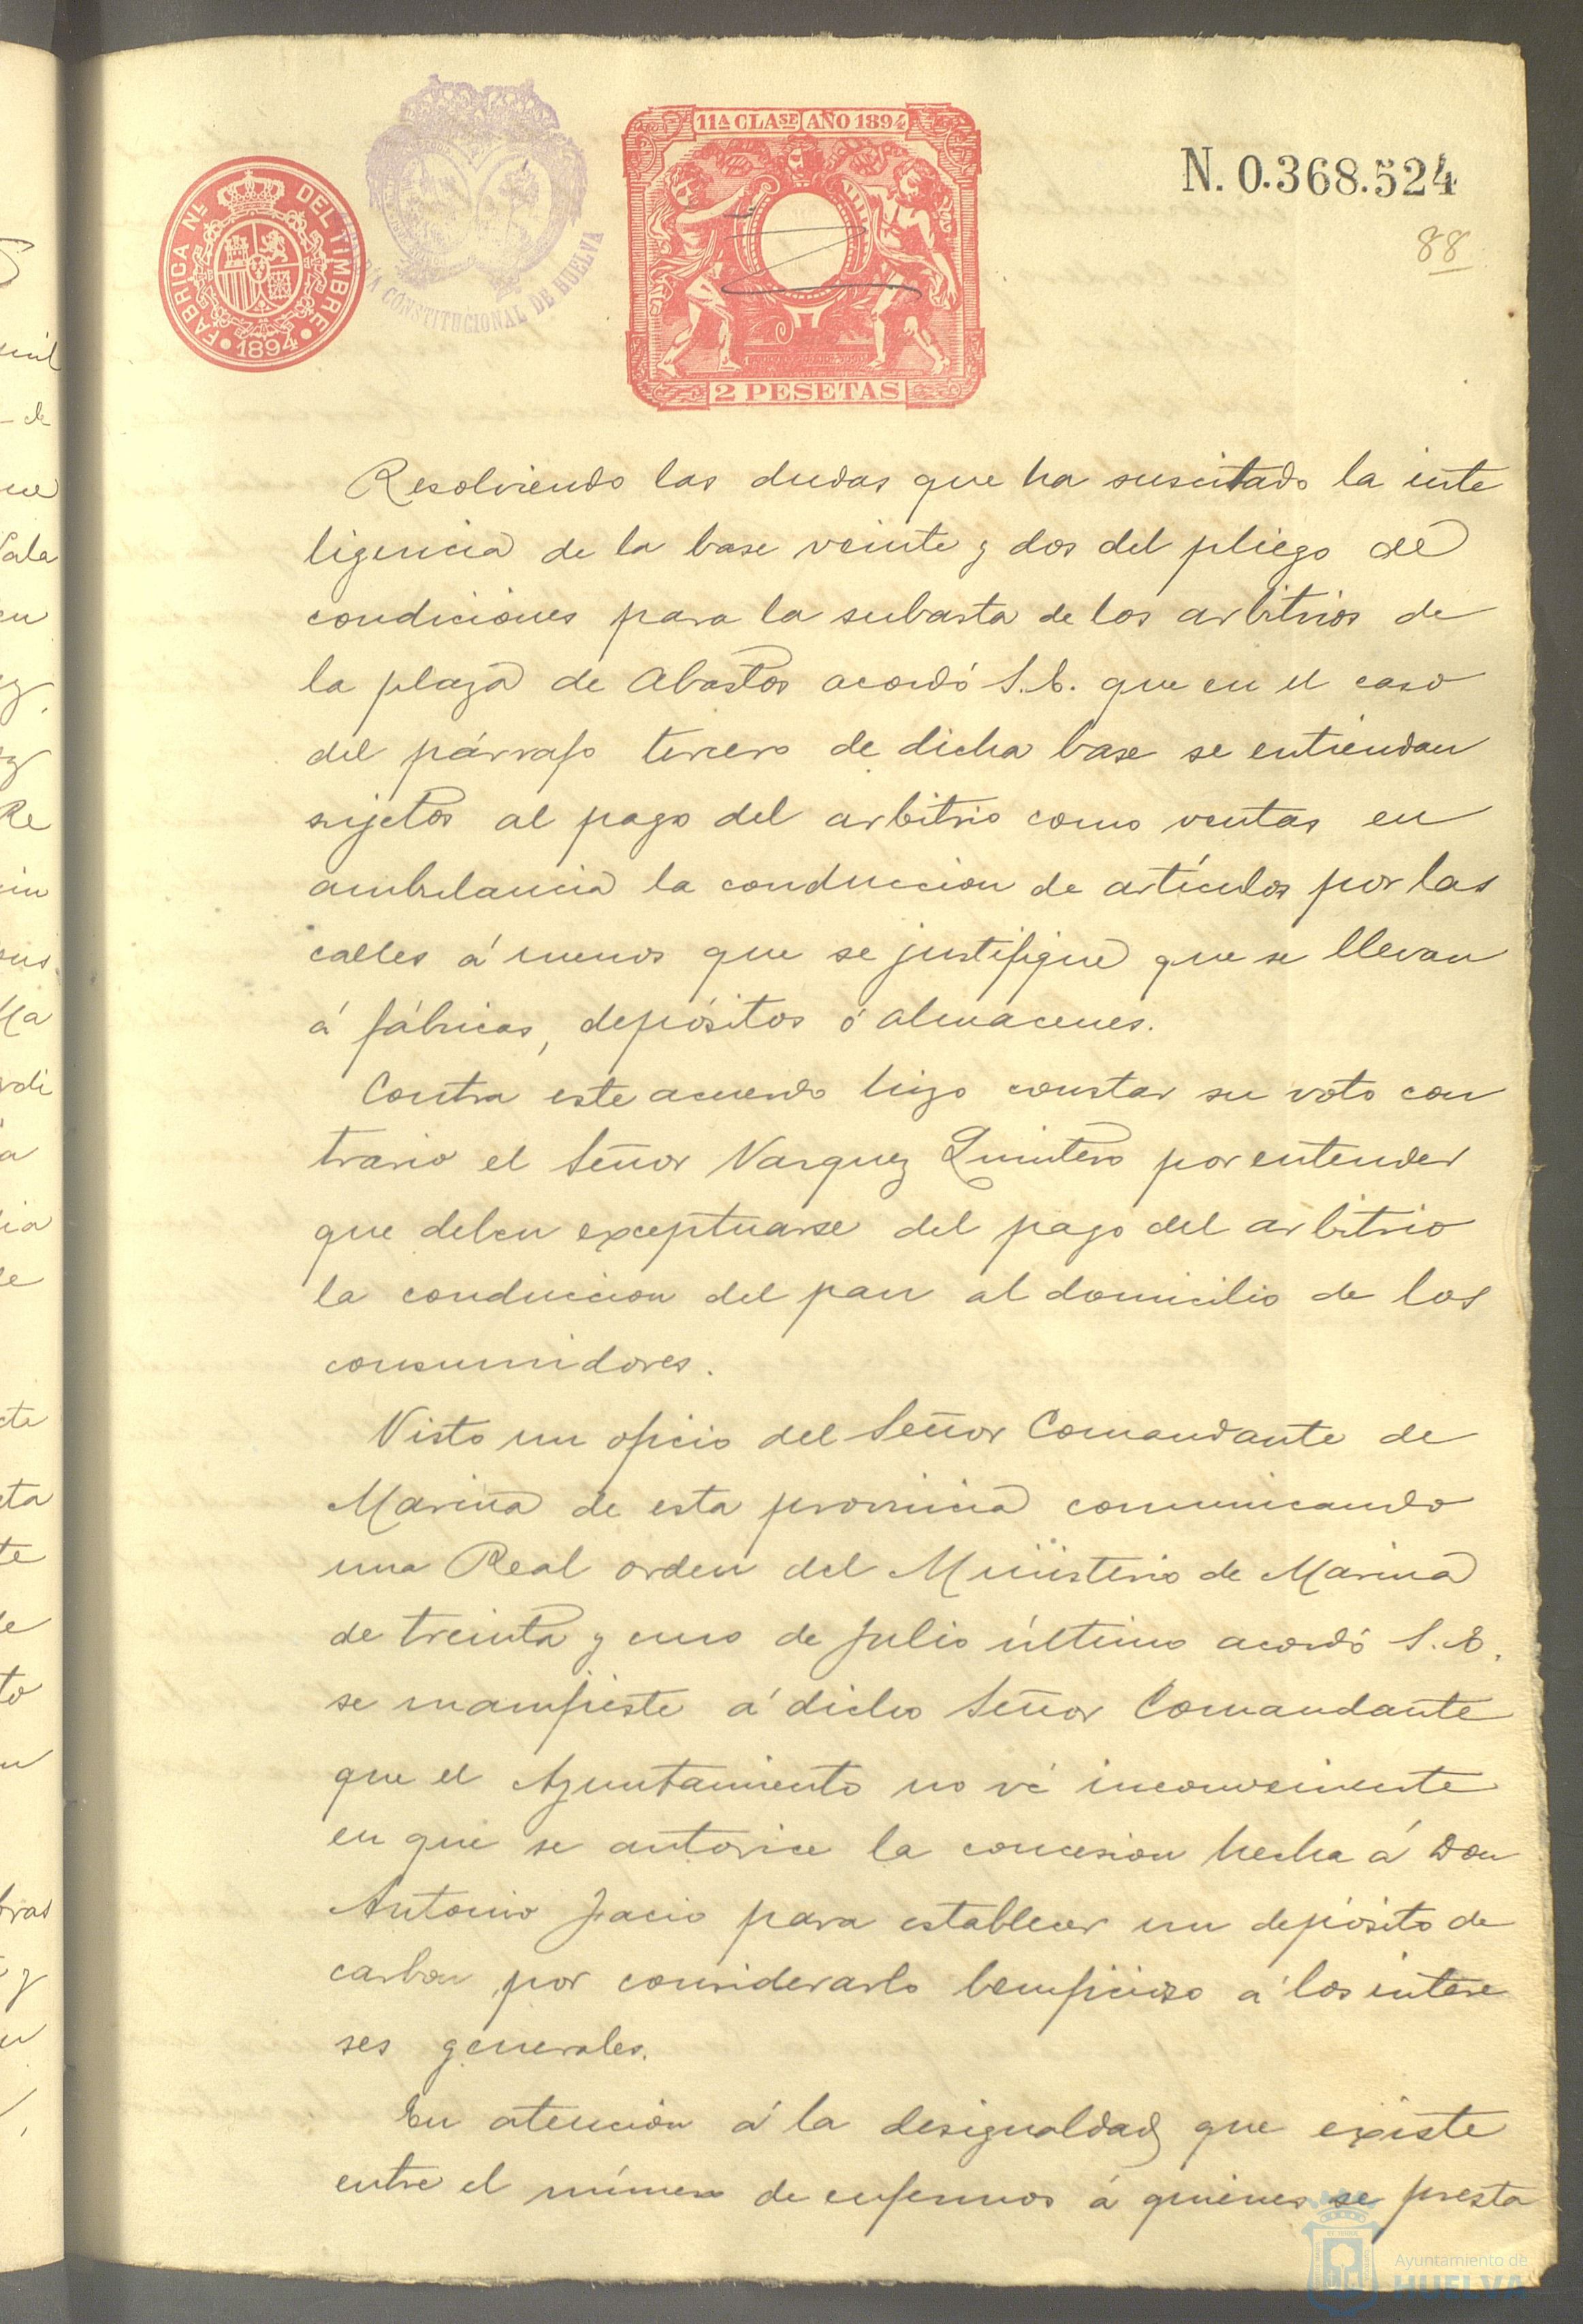 11ª CLASE AÑO 1894
N. 0.368.524
FABRICA Nal. DEL TIMBRE
1894
CONSTITUCIONAL DE HUELVA
88
2 PESETAS
Resolviendo las dudas que ha suscitado la inte
ligencia de la base veinte y dos del pliego de
condiciones para la subasta de los arbitrios de
la plaza de Abastos acordó S.E. que en el caso
del párrafo tercero de dicha base se entiendan
sujetos al pago del arbitrio como ventas en
ambulancia la conduccion de artículos por las
calles á menos que se justifique que se llevan
á fábricas, depósitos ó almacenes.
Contra este acuerdo hizo constar su voto con
trario el Señor Vazquez Quintero por entender
que deben exceptuarse del pago del arbitrio
la conduccion del pan al domicilio de los
consumidores.
Visto un oficio del Señor Comandante de
Marina de esta provincia comunicando
una Real orden del Ministerio de Marina
de treinta y uno de Julio último acordó S.E.
se manifieste á dicho Señor Comandante
que el Ayuntamiento no vé inconveniente
en que se autorice la concesion hecha á Don
Antonio para establecer un depósito de
carbon por considerarlo beneficioso á los intere
ses generales.
En atención á la desigualdad que existe
entre el número de enfermos á quienes se presta
Ayuntamiento de
HUELVA